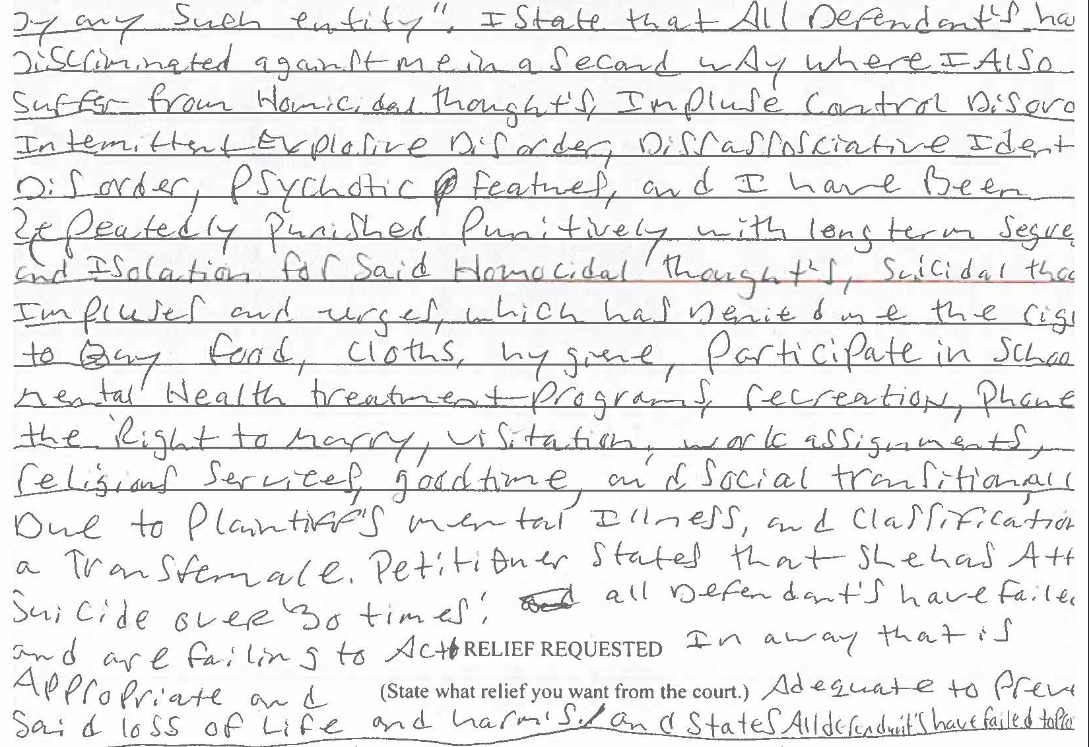 by any such entity". I State that All Defendant's ha
Discriminated against me in a Second wAy where I Also
Suffer from Homicidal thought's, Impluse Control Disord
Intemittent Explosive Disorder, Dissassosciative Ident
Disorder, Psychotic Features, and I have Been
Repeatedly Punished Punitively with long term Segre
and Isolation for Said Homocidal thought's, Suicidal tho
Impluses and urges, which has Denied me the rig
to Buy food, cloths, hygiene, Participate in Schoo
mental Health treatment Programs, recreation, Phone
the Right to marry, visitation, work assignments,
religious Services, goodtime, and Social transitionall
Due to Plaintiff's mental Illness, and Classification
a Transfemale. Petitioner States that She has Att
Suicide over 30 times! all Defendant's have faile
and are failing to Act RELIEF REQUESTED In a way that is
Appropriate and (State what relief you want from the court.) Adequate to Prev
Said loss of Life and harms. and States All defendant's have failed to